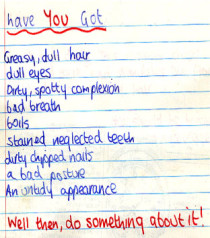 have You Got
Greasy, dull hair
dull eyes
Dirty, spotty complexion
bad breath
boils
stained neglected teeth
dirty chipped nails
a bad posture
An untidy appearance
Well then, do something about it!